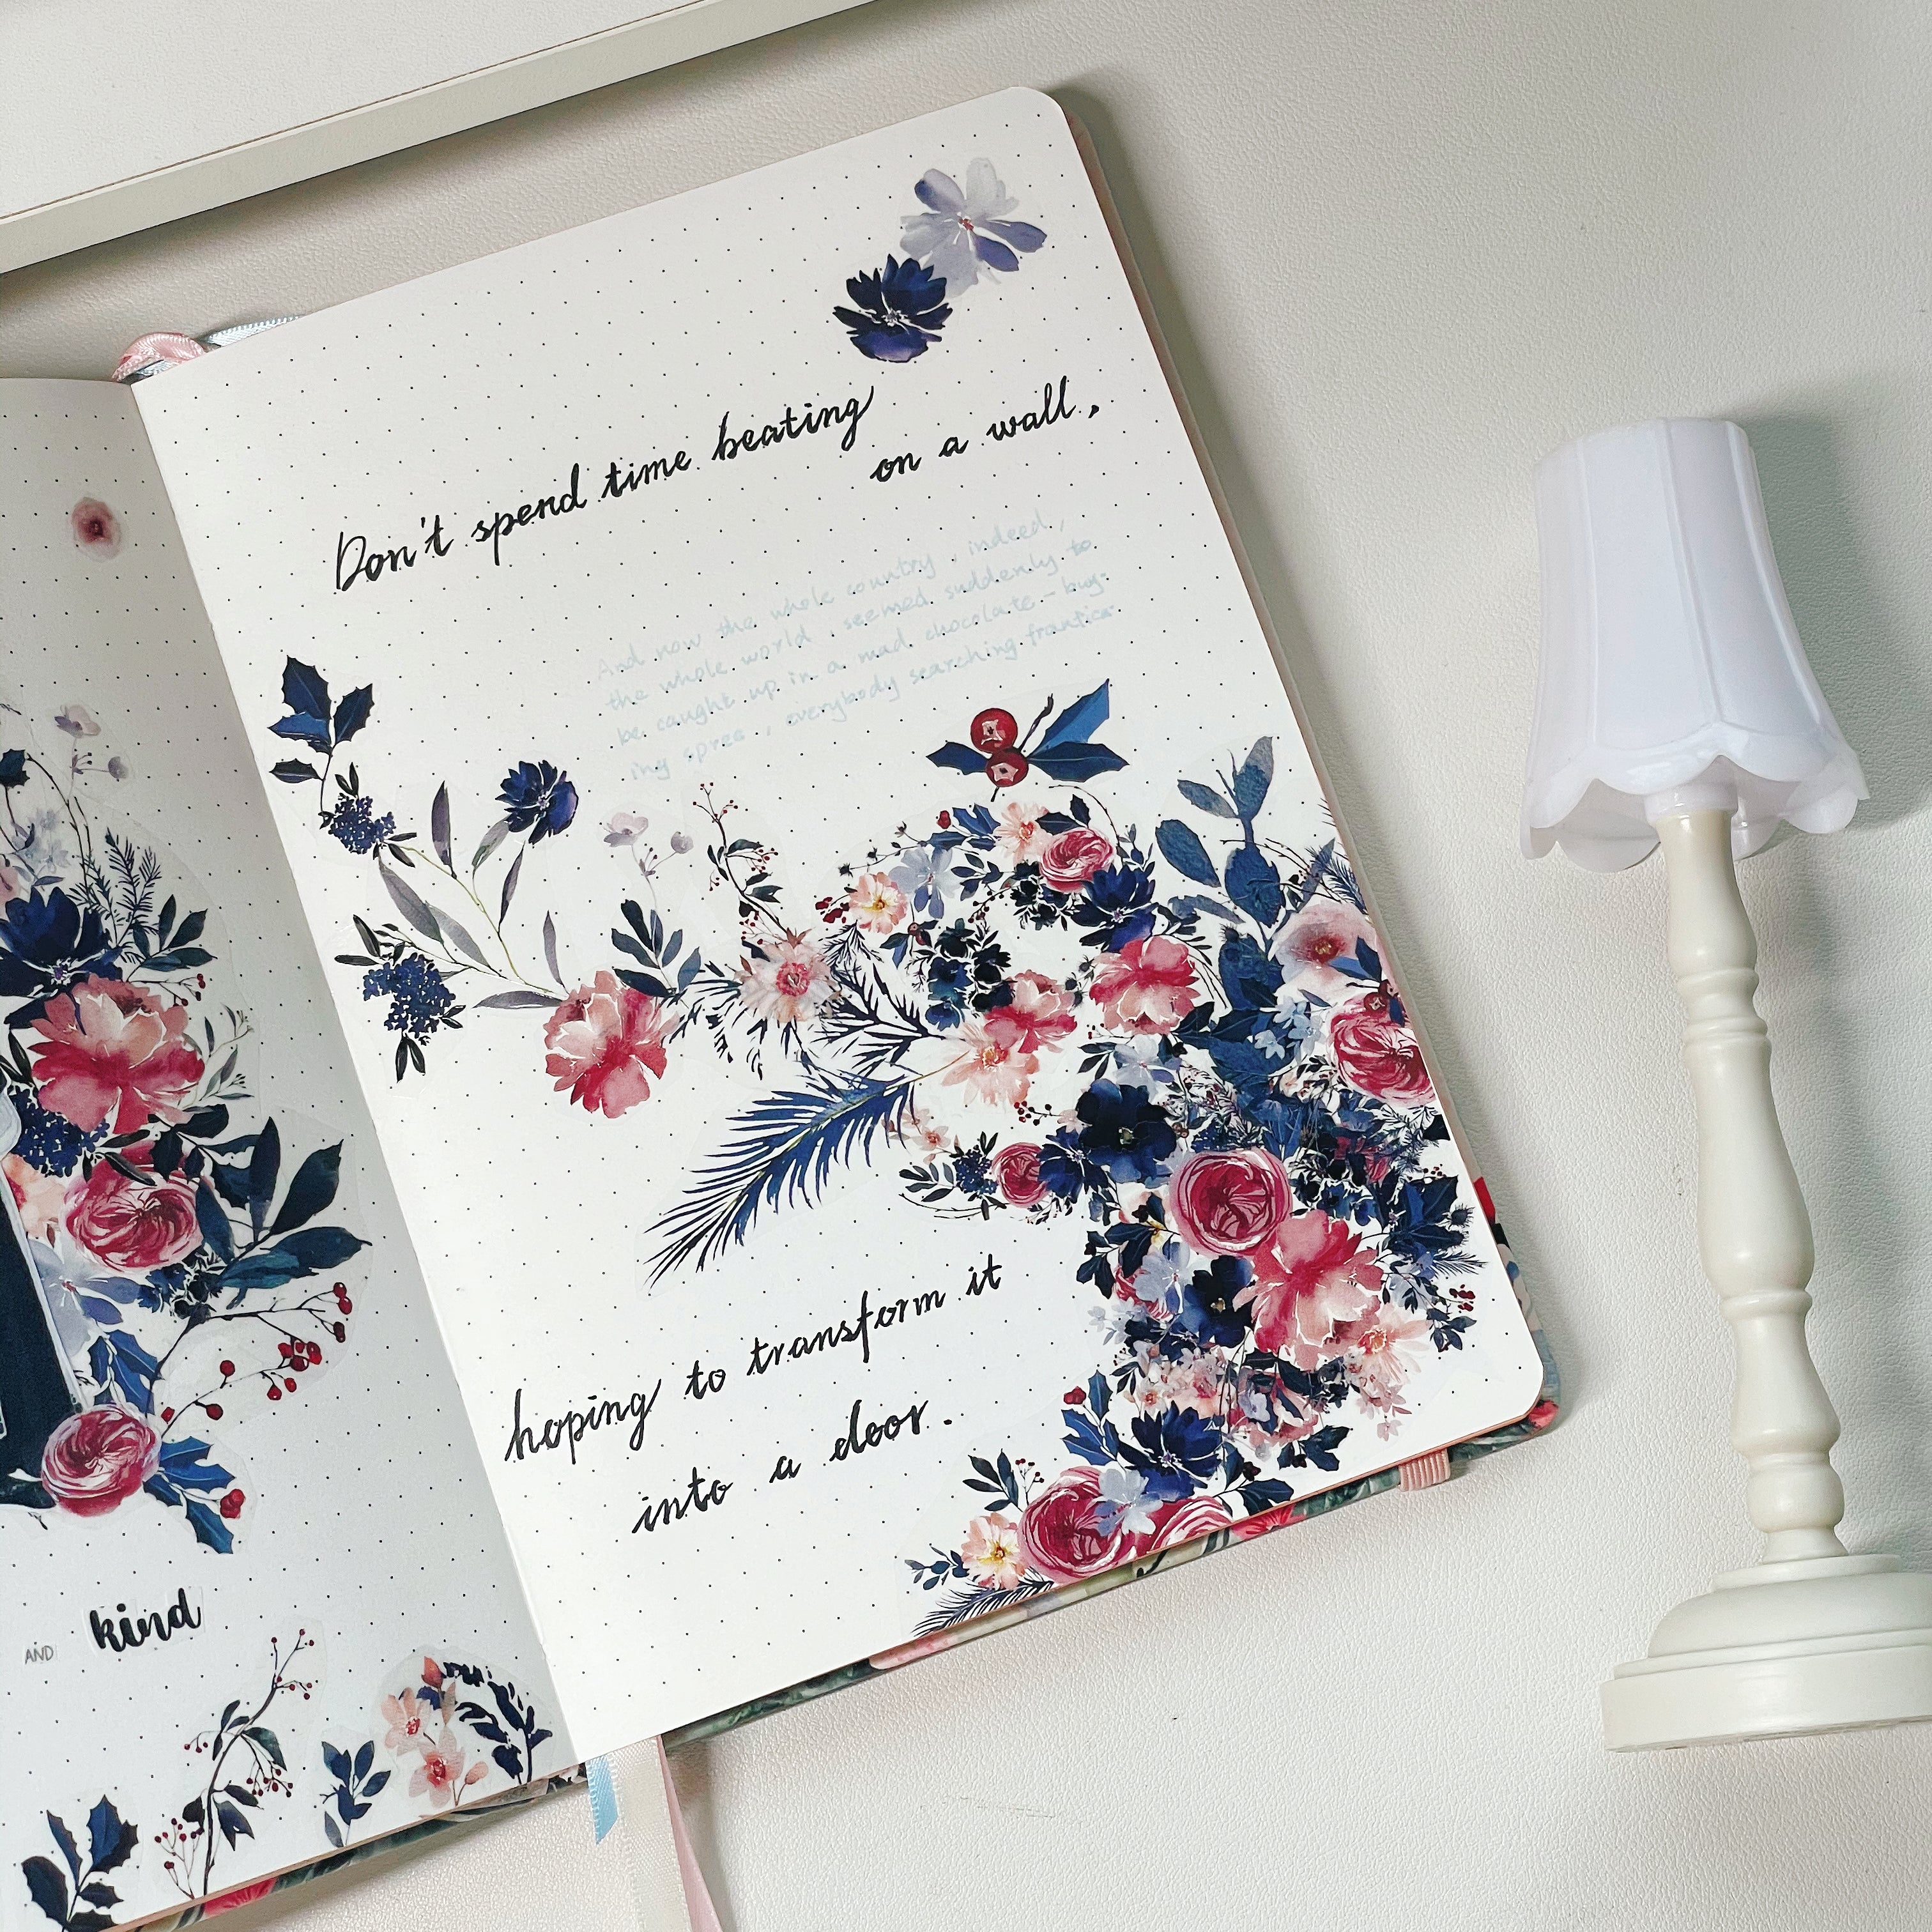 AND kind
Don't spend time beating
on a wall,
And now the whole country, indeed,
the whole world, seemed suddenly to
be caught up in a mad chocolate-buy-
ing spree, everybody searching frantica-
hoping to transform it
into a door.